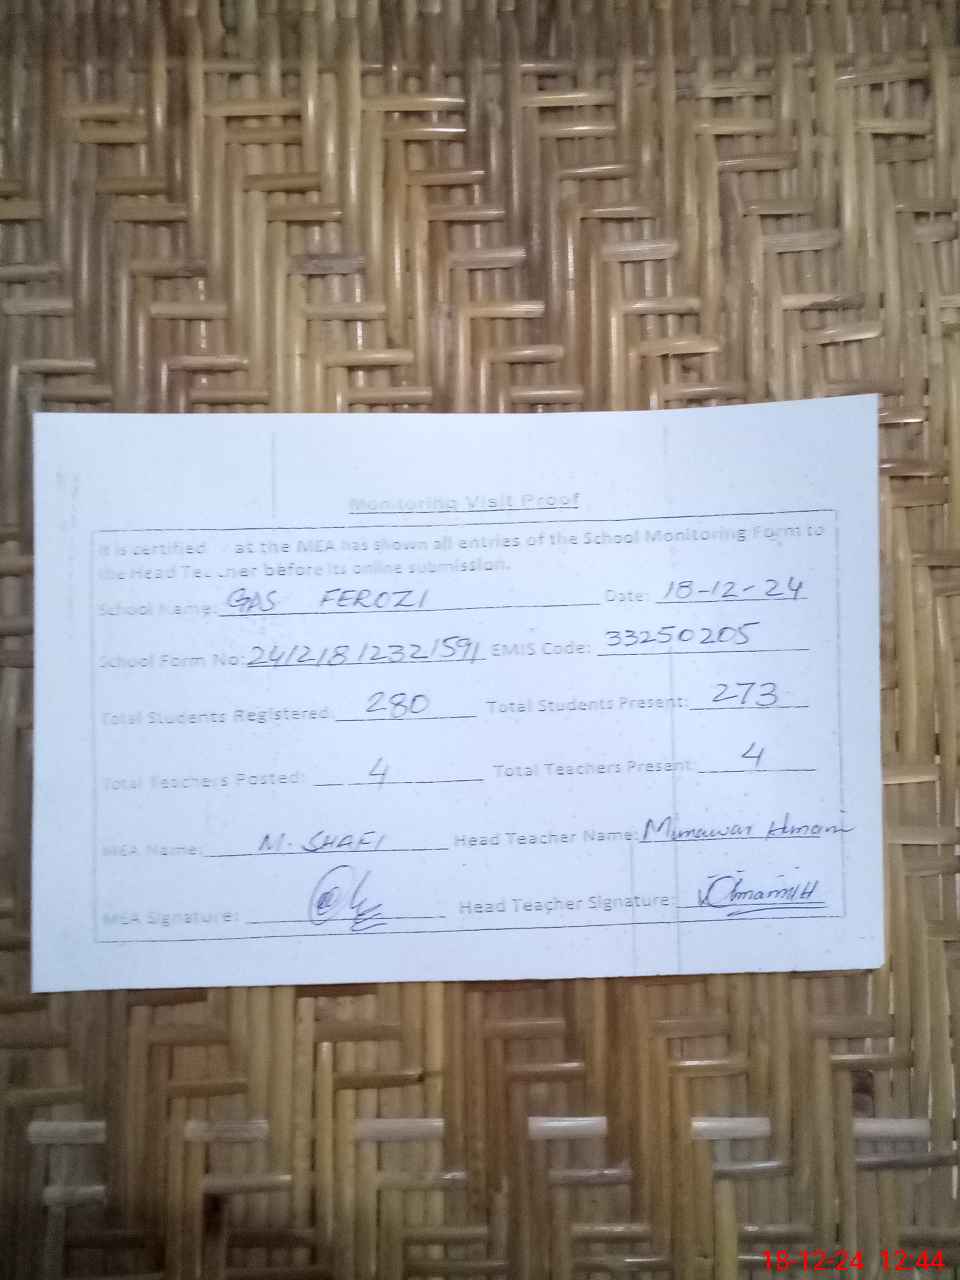 Monitoring Visit Proof
It is certified at the MEA has shown all entries of the School Monitoring Form to
the Head Teacher before its online submission.
School Name: GAS FEROZI Date: 18-12-24
School Form No: 24121812321591 EMIS Code: 33250205
Total Students Registered: 280 Total Students Present: 273
Total Teachers Posted: 4 Total Teachers Present: 4
MEA Name: M. SHAFI Head Teacher Name: Munawar
MEA Signature: Head Teacher Signature:
18-12-24 12:44